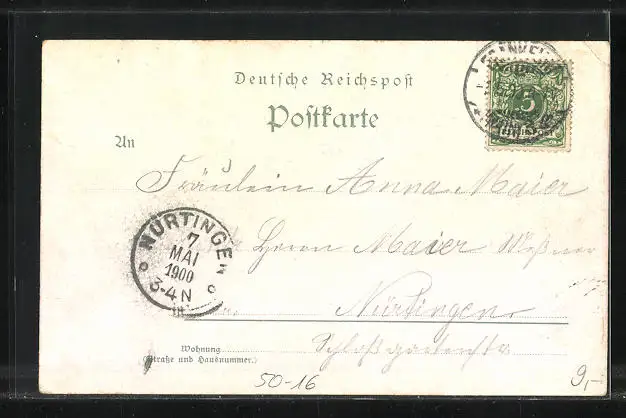 Deutsche Reichspost
Postkarte
An
5
REICHSPOST
Fräulein Anna Maier
Herrn Maier
NÜRTINGEN
7
MAI
1900
3-4 N
Nürtingen
Wohnung
(Straße und Hausnummer.)
50-16
9,-